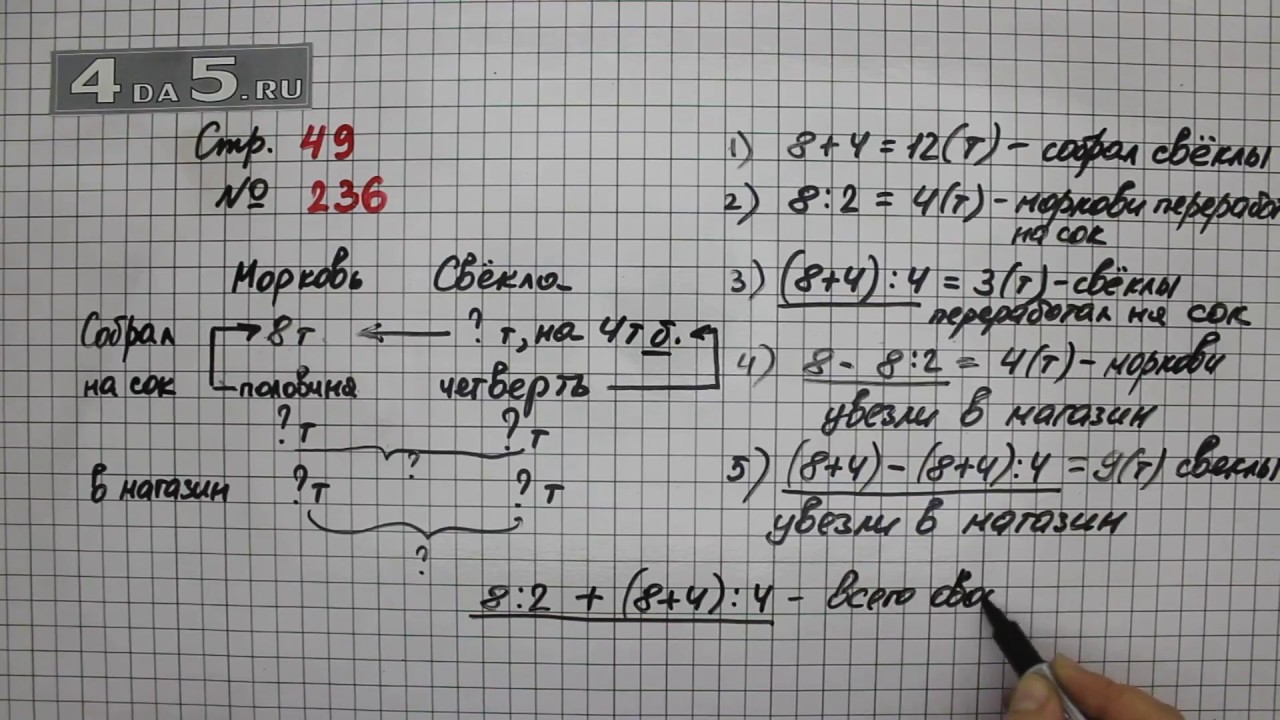 4DA5.RU
Стр. 49
№ 236
Морковь Свёкла
Собрал 8т ? т, на 4т б.
на сок половина четверть
?т ?т
?
в магазин ?т ? т
?
1) 8+4=12(т) - собрал свёклы
2) 8:2 = 4(т) - моркови перерабо
на сок
3) (8+4):4 = 3(т) - свёклы
переработал на сок
4) 8 - 8:2 = 4(т) - моркови
увезли в магазин
5) (8+4)-(8+4):4 = 9(т) свеклы
увезли в магазин
8:2 + (8+4):4 - всего